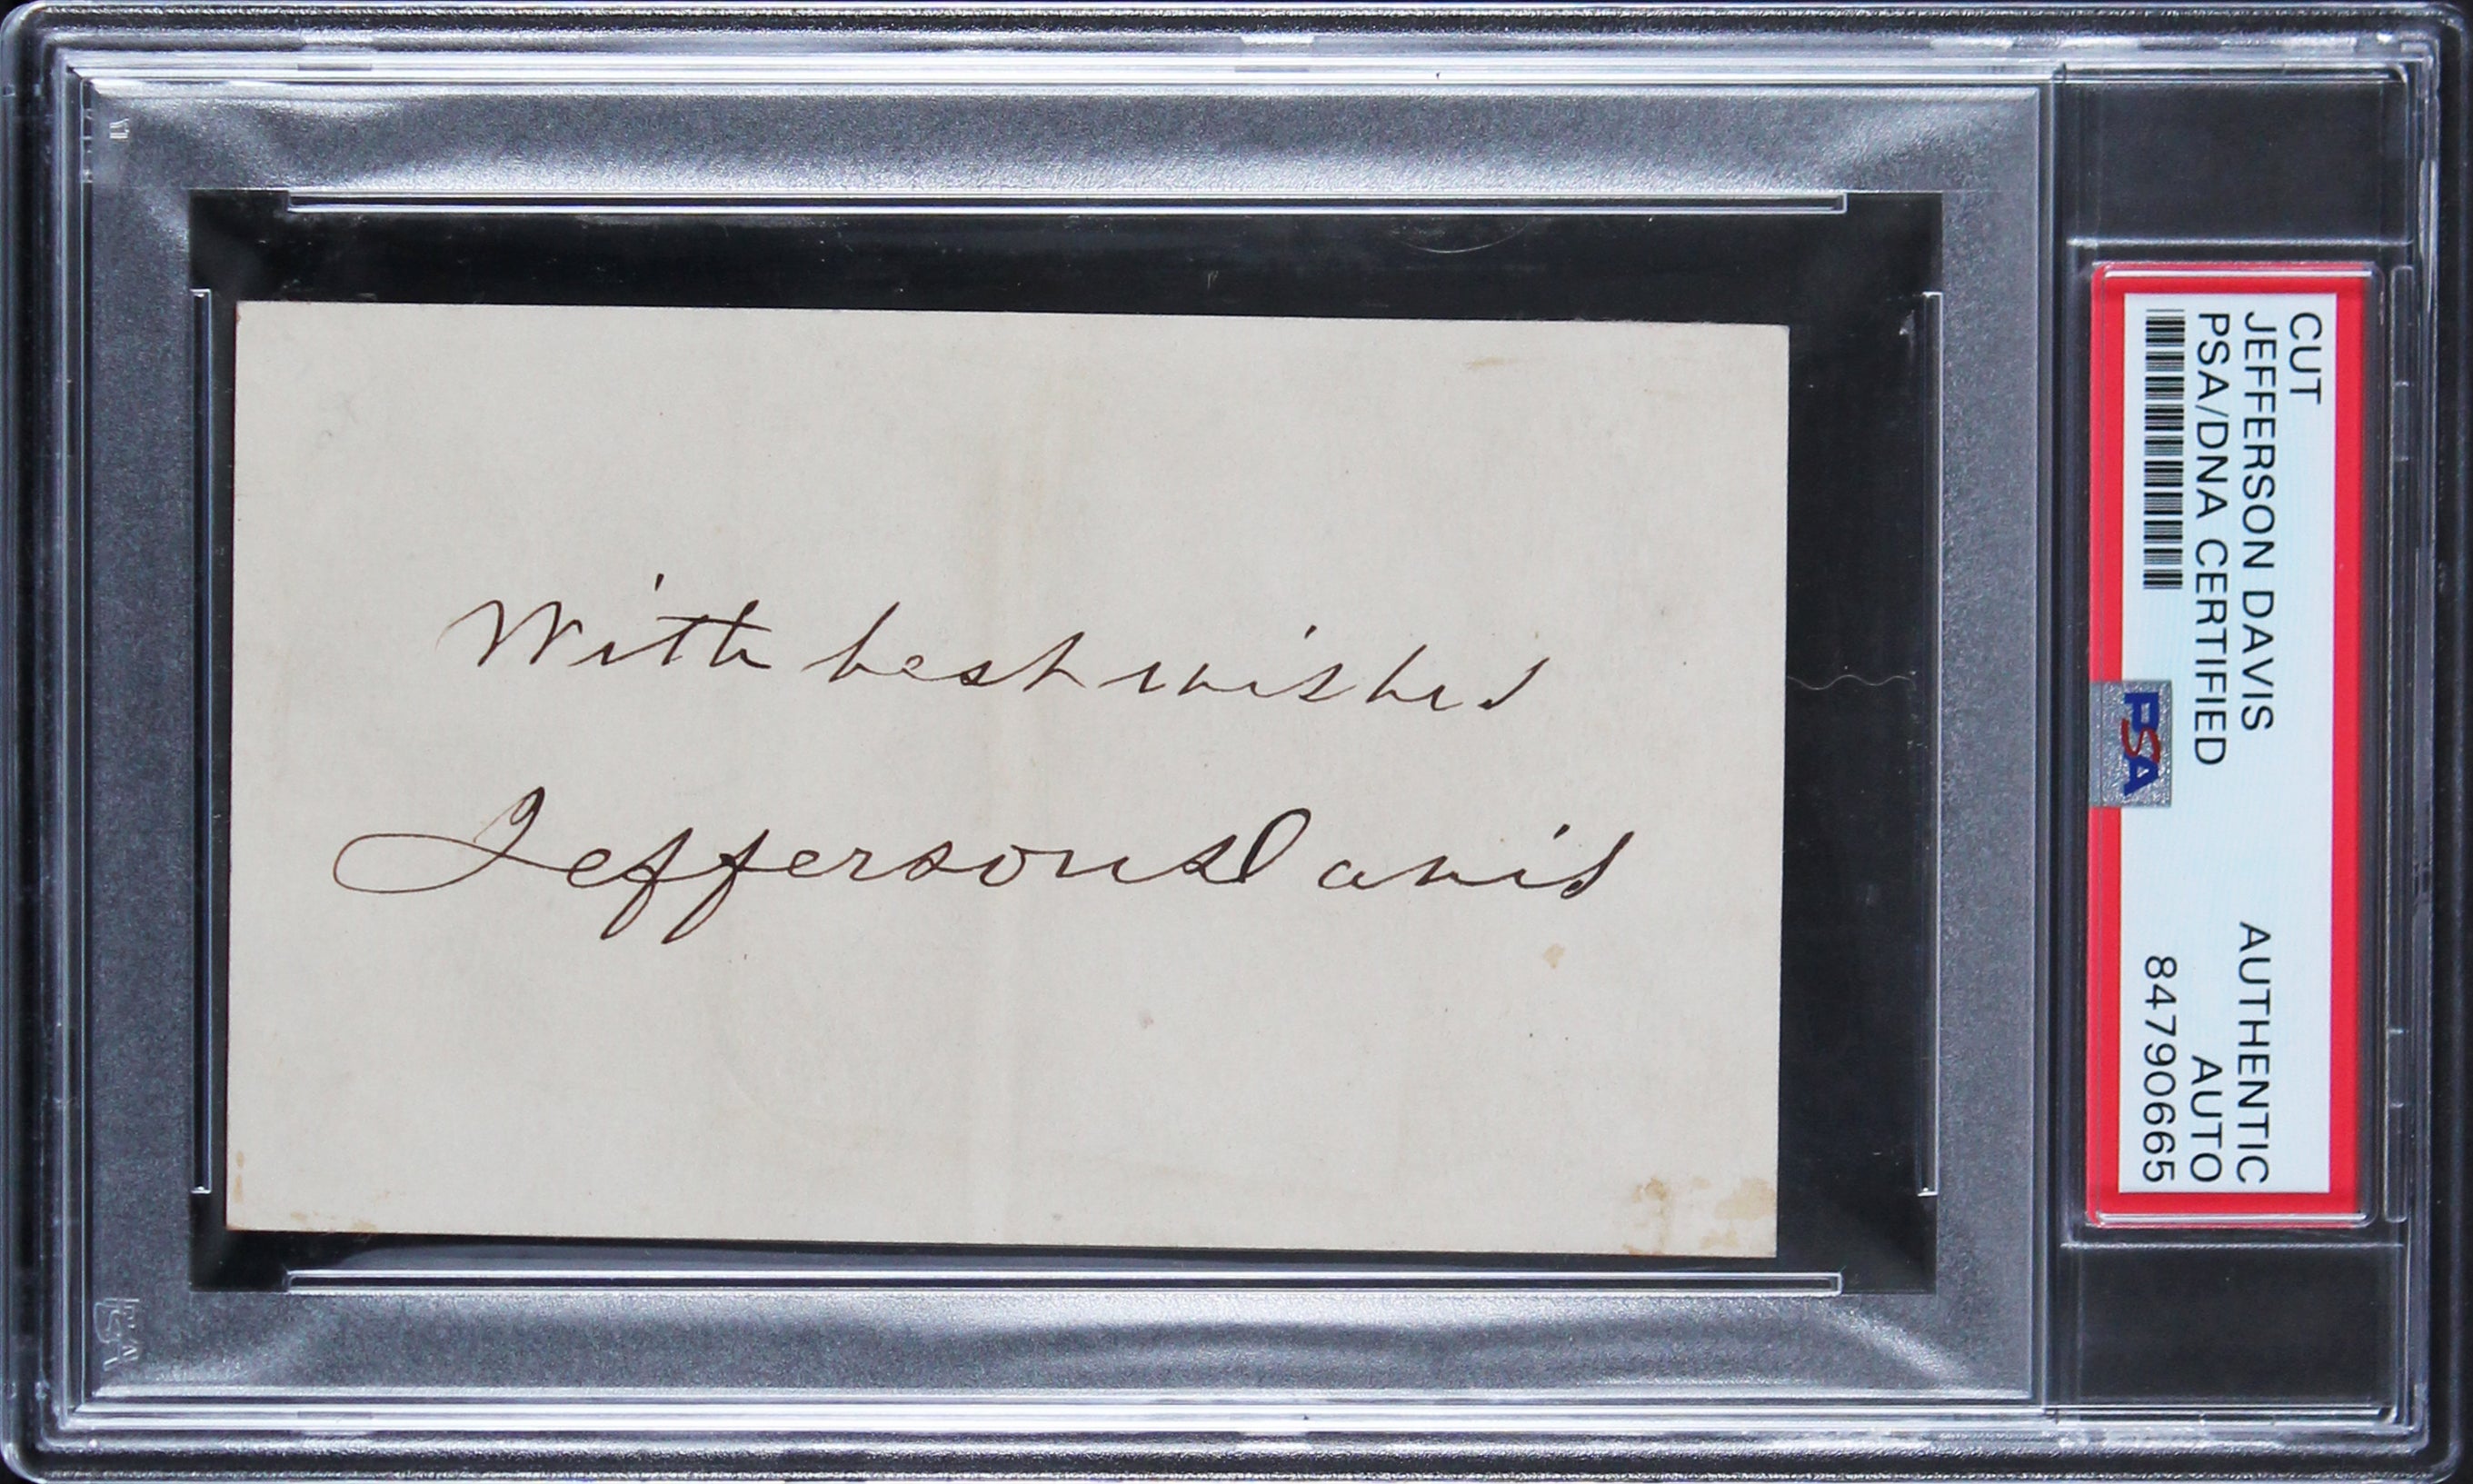 With best wishes
Jefferson Davis
CUT
JEFFERSON DAVIS
PSA/DNA CERTIFIED
AUTHENTIC
AUTO
84790665
PSA